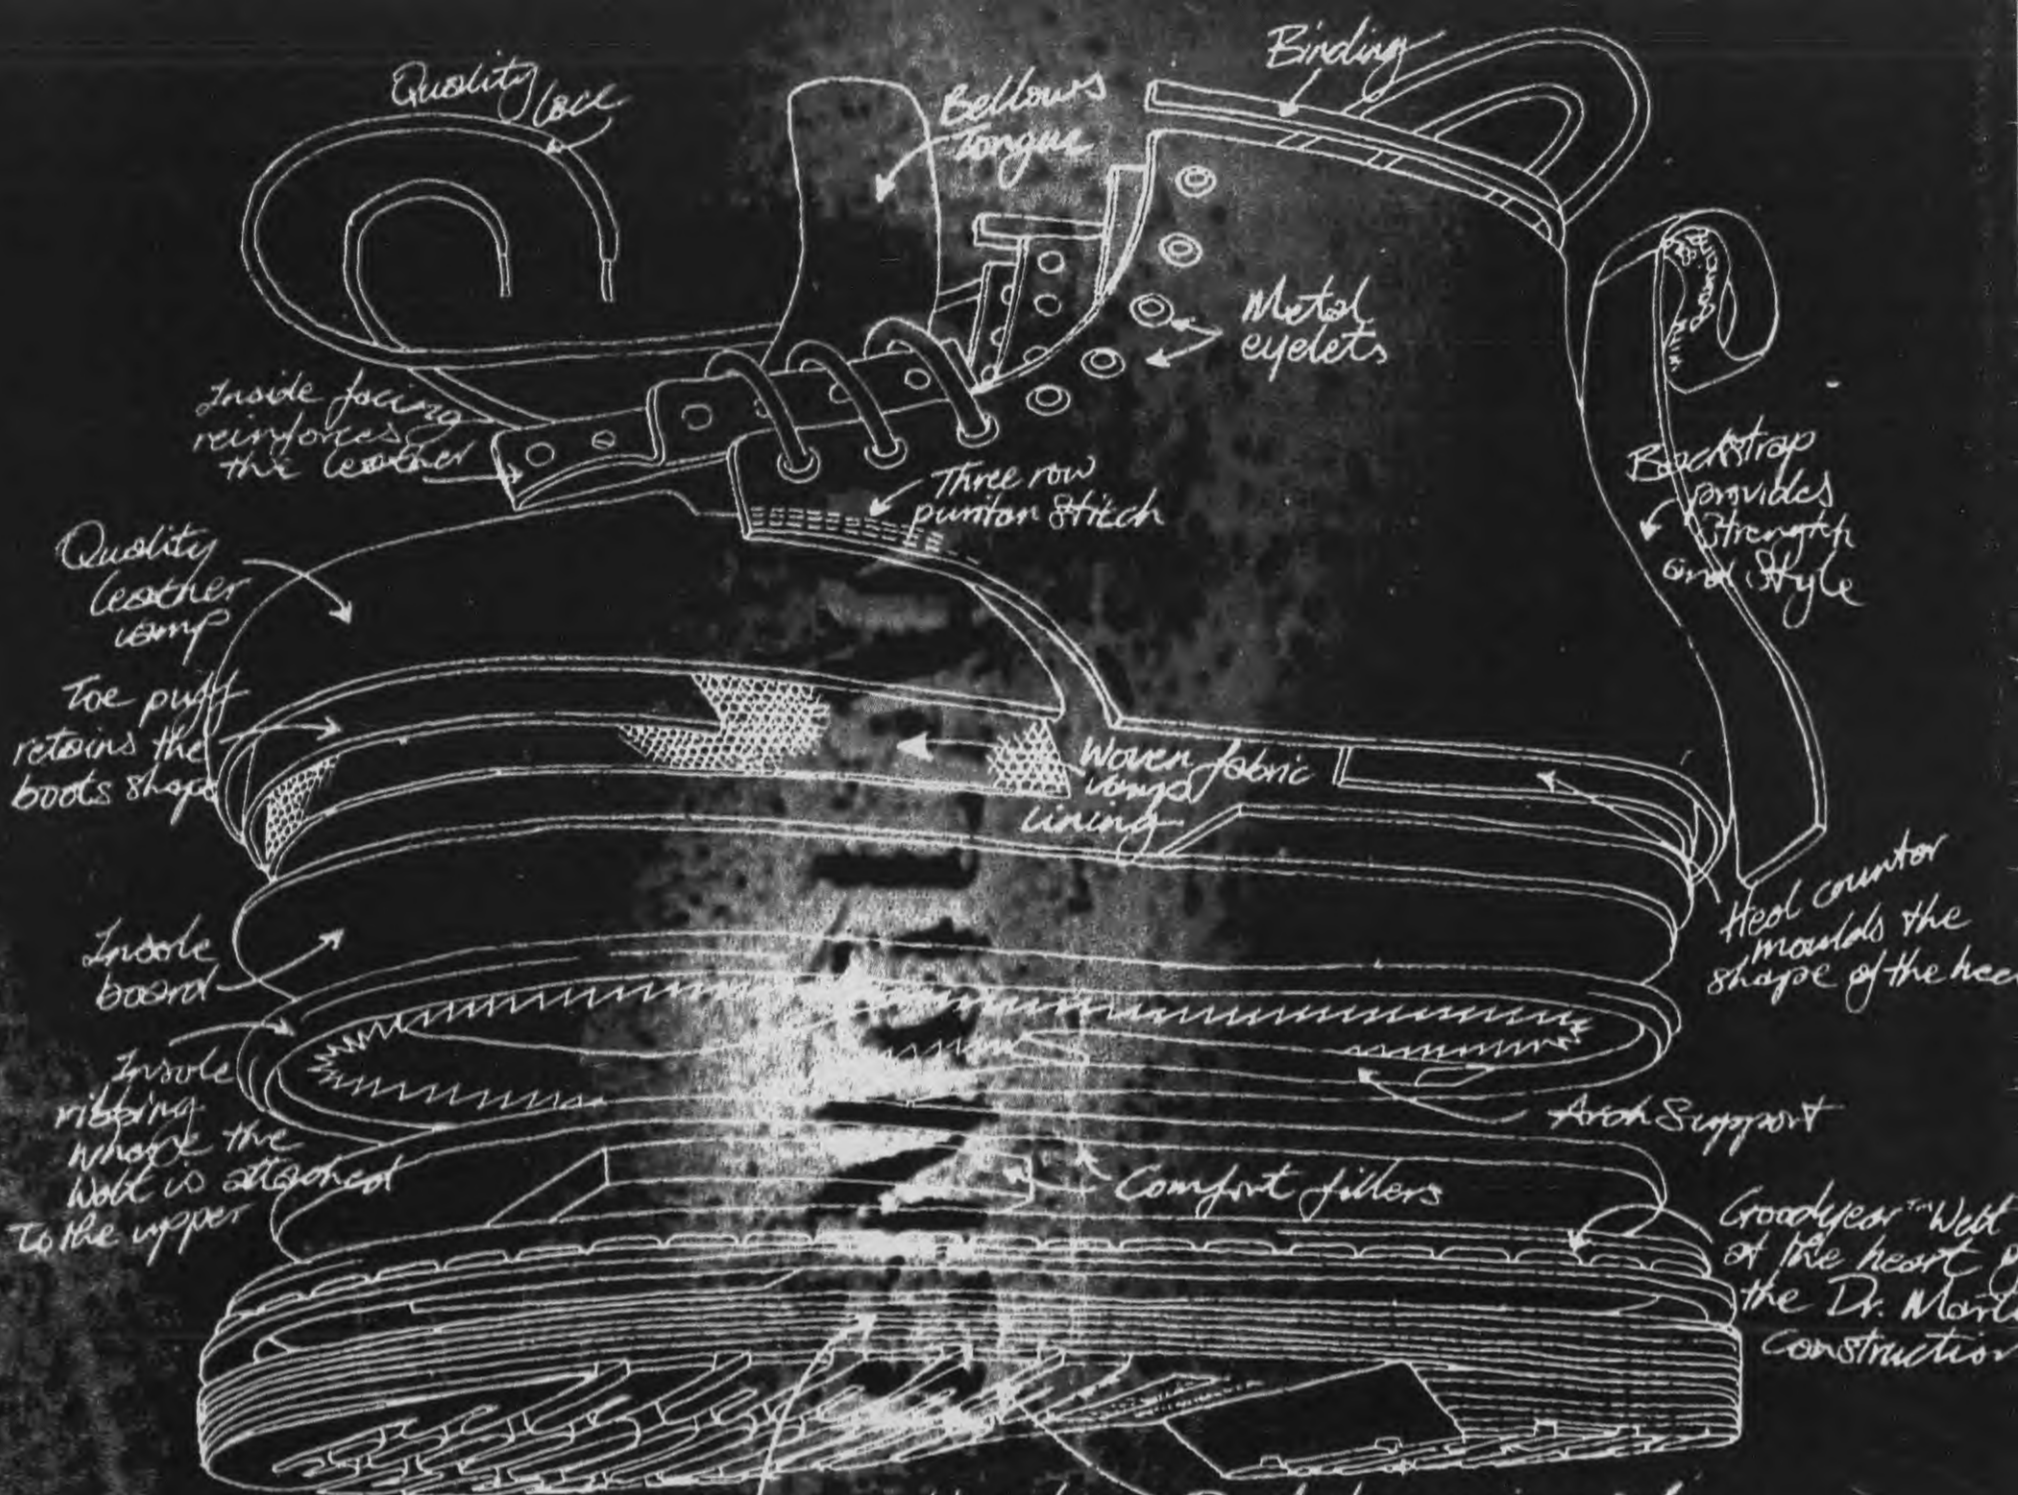 Quality
lace
Bellows
tongue
Binding
Metal
eyelets
Inside facing
reinforces
the leather
Three row
puritan stitch
Backstrap
provides
strength
and style
Quality
leather
vamp
Toe puff
retains the
boots shape
Woven fabric
vamp
lining
Heel counter
moulds the
shape of the
Insole
board
Insole
ribbing
where the
Welt is attached
To the upper
Arch Support
Comfort fillers
Goodyear™ Welt
at the heart
the Dr.
construction